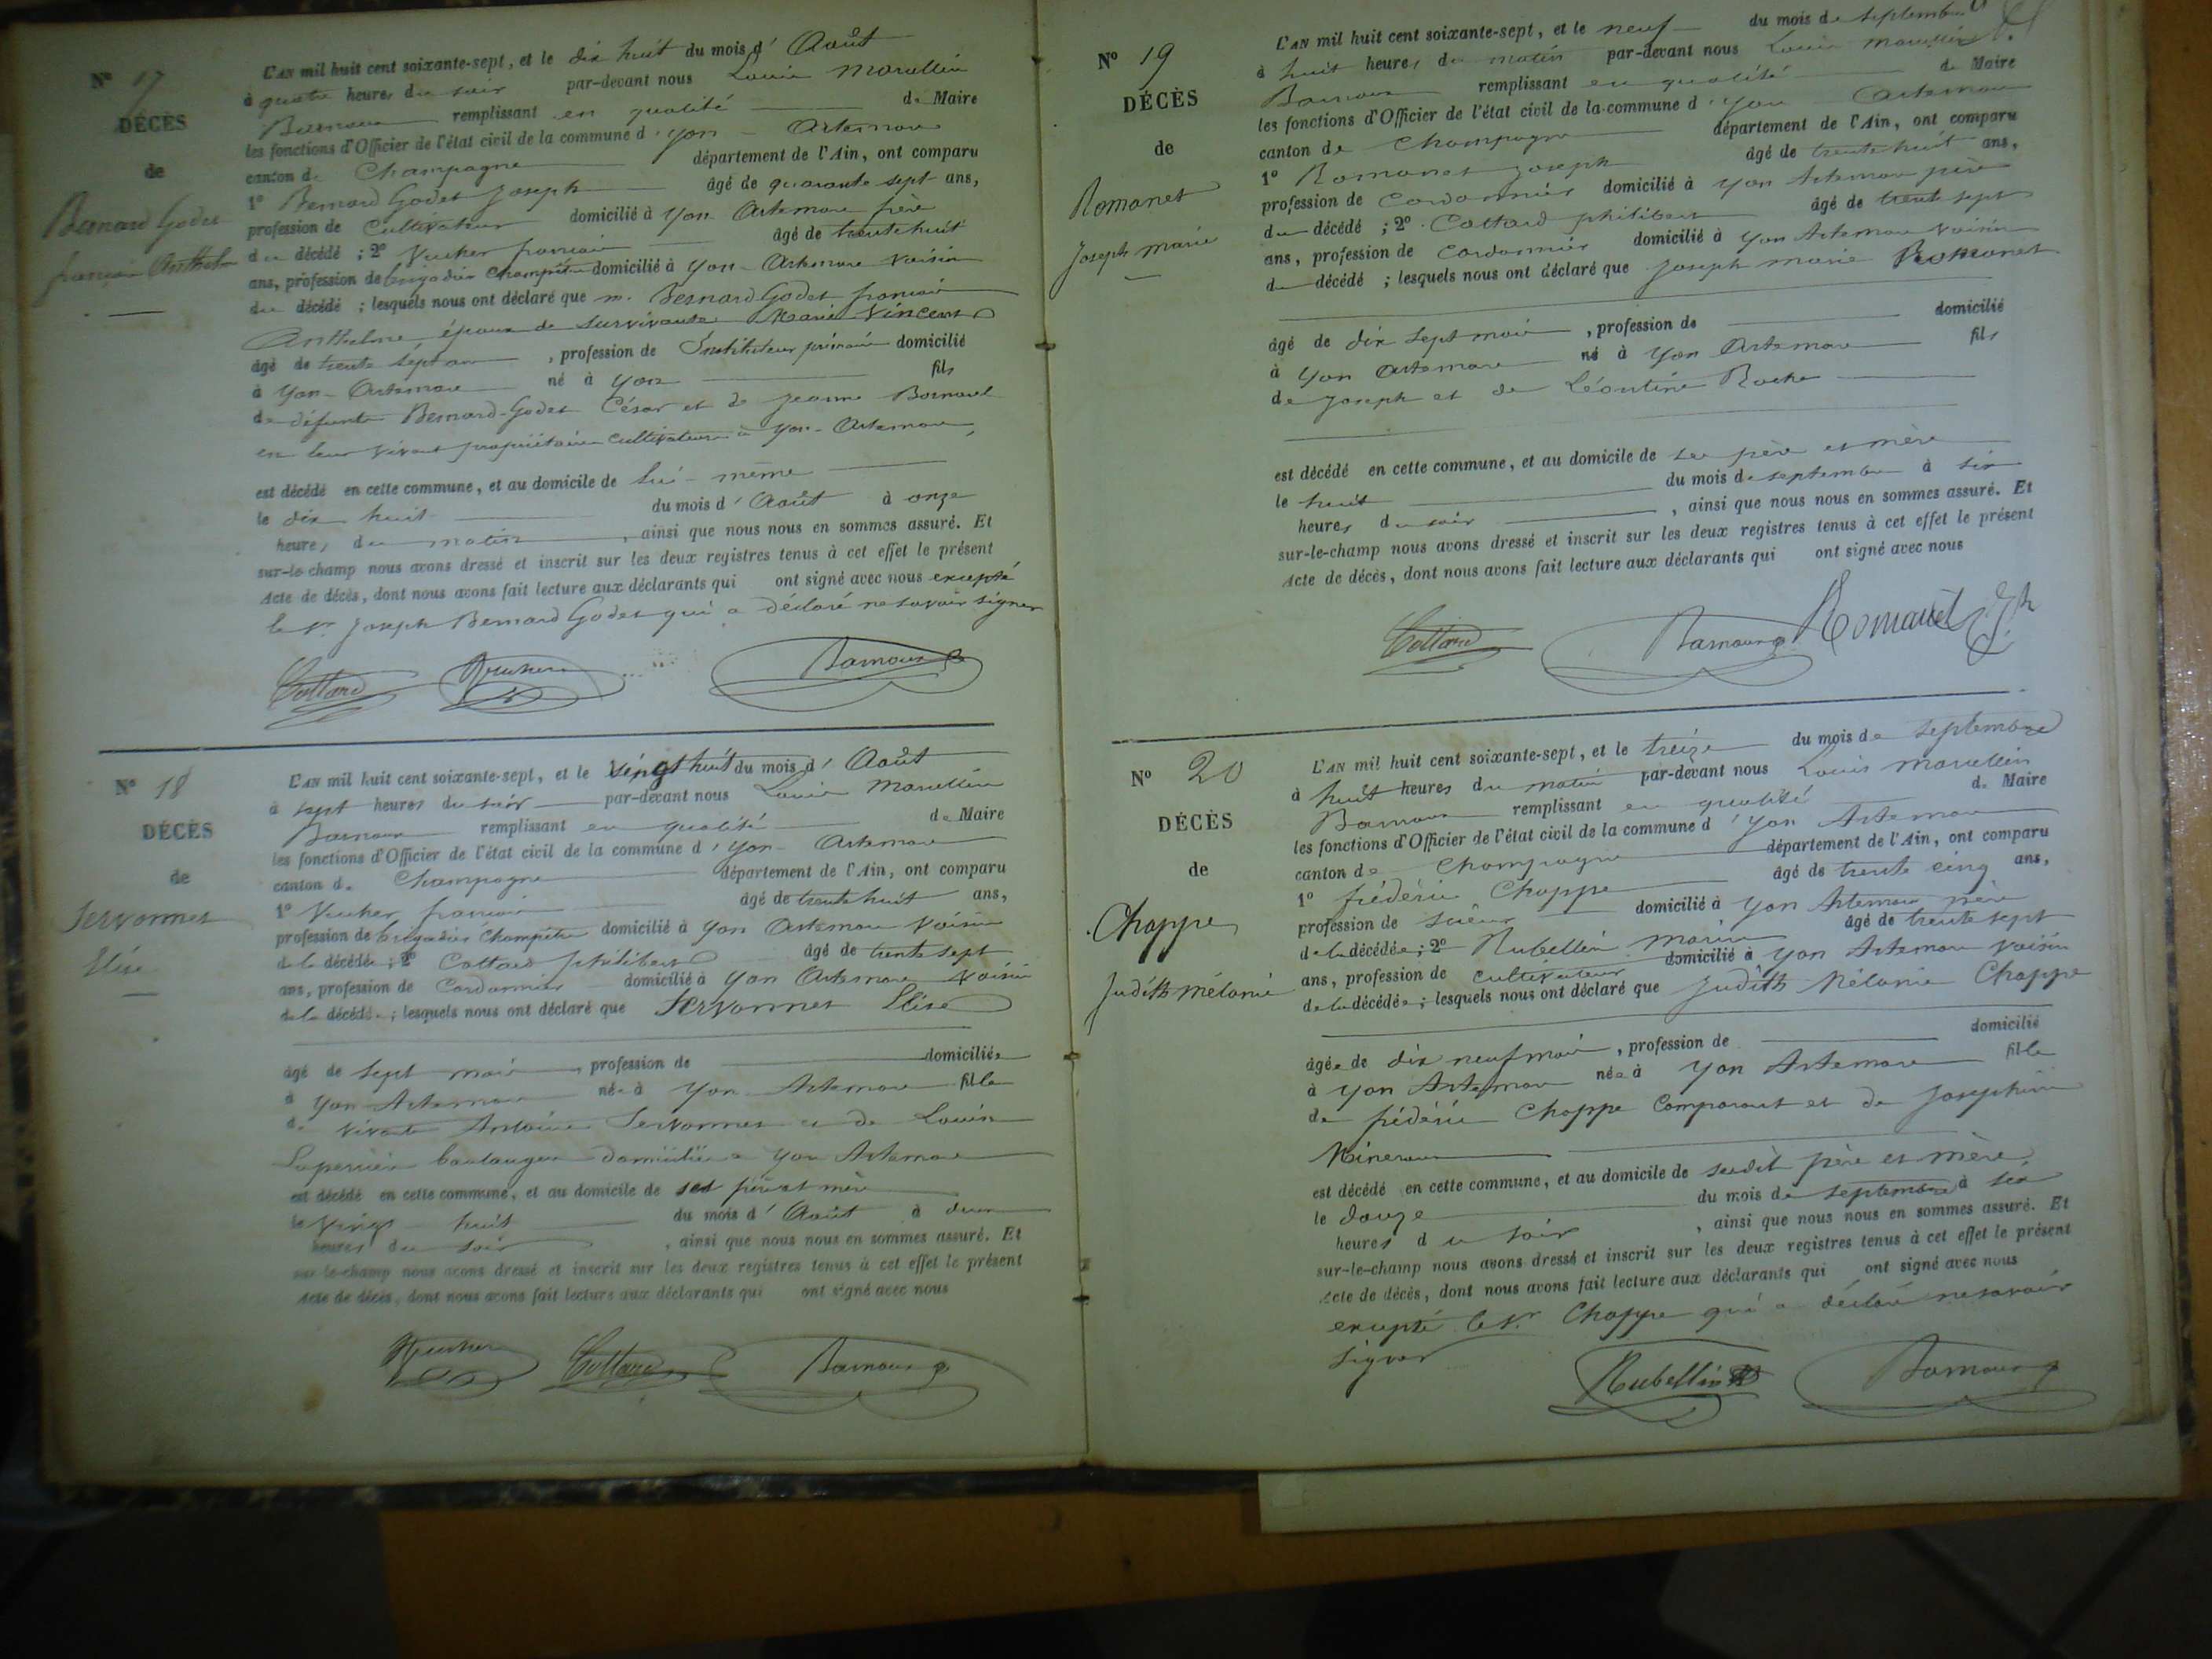 N° 17
DÉCÈS
de
Bernard Godet
françois Anthel
L'AN mil huit cent soixante-sept, et le dix huit du mois d' Août
à quatre heures du soir par-devant nous Louis Marcellin
Barnoux remplissant en qualité de Maire
les fonctions d'Officier de l'état civil de la commune d' yon - Artemare
canton de Champagne département de l'Ain, ont comparu
1° Bernard Godet Joseph âgé de quarante sept ans,
profession de Cultivateur domicilié à yon Artemare frère
du décédé ; 2° françois âgé de trente huit
ans, profession de brigadier Champêtre domicilié à yon - Artemare voisin
du décédé ; lesquels nous ont déclaré que m. Bernard Godet françois
Anthelme, époux de survivante Marie Vincent
âgé de trente sept ans, profession de Instituteur primaire domicilié
à yon - Artemare né à yon fils
de défunts Bernard-Godet César et de Jeanne
en leur vivant propriétaires cultivateurs à yon - Artemare,
est décédé en cette commune, et au domicile de lui-même
le dix huit du mois d' Août à onze
heures du matin, ainsi que nous nous en sommes assuré. Et
sur-le-champ nous avons dressé et inscrit sur les deux registres tenus à cet effet le présent
Acte de décès, dont nous avons fait lecture aux déclarants qui ont signé avec nous excepté
le Sr Joseph Bernard Godet qui a déclaré ne savoir signer
Cottard Barnoux
N° 18
DÉCÈS
de
Servonnet
Elise
L'AN mil huit cent soixante-sept, et le vingt huit du mois d' Août
à sept heures du soir par-devant nous Louis Marcellin
Barnoux remplissant en qualité de Maire
les fonctions d'Officier de l'état civil de la commune d' yon - Artemare
canton de Champagne département de l'Ain, ont comparu
1° françois âgé de trente huit ans,
profession de brigadier Champêtre domicilié à yon Artemare voisin
de la décédée ; 2° Cottard philibert âgé de trente sept
ans, profession de Cordonnier domicilié à yon Artemare voisin
de la décédée ; lesquels nous ont déclaré que Servonnet Elise
âgé de sept mois, profession de domiciliée
à yon - Artemare née à yon - Artemare fille
de vivants Antoine Servonnet et de Louise
boulanger domiciliés à yon Artemare
est décédé en cette commune, et au domicile de ses père et mère
le vingt - huit du mois d' Août à deux
heures du soir, ainsi que nous nous en sommes assuré. Et
sur-le-champ nous avons dressé et inscrit sur les deux registres tenus à cet effet le présent
Acte de décès, dont nous avons fait lecture aux déclarants qui ont signé avec nous
Cottard Barnoux
N° 19
DÉCÈS
de
Romanet
Joseph marie
L'AN mil huit cent soixante-sept, et le neuf du mois de septembre
à huit heures du matin par-devant nous Louis Marcellin
Barnoux remplissant en qualité de Maire
les fonctions d'Officier de l'état civil de la commune d' yon Artemare
canton de Champagne département de l'Ain, ont comparu
1° Romanet Joseph âgé de trente huit ans,
profession de Cordonnier domicilié à yon Artemare père
du décédé ; 2° Cottard philibert âgé de trente sept
ans, profession de Cordonnier domicilié à yon Artemare voisin
du décédé ; lesquels nous ont déclaré que Joseph marie Romanet
âgé de dix sept mois, profession de domicilié
à yon Artemare né à yon Artemare fils
de Joseph et de Léontine Roche
est décédé en cette commune, et au domicile de ses père et mère
le huit du mois de septembre à six
heures du soir, ainsi que nous nous en sommes assuré. Et
sur-le-champ nous avons dressé et inscrit sur les deux registres tenus à cet effet le présent
Acte de décès, dont nous avons fait lecture aux déclarants qui ont signé avec nous
Cottard Barnoux Romanet
N° 20
DÉCÈS
de
Chappe
Judith Mélanie
L'AN mil huit cent soixante-sept, et le treize du mois de septembre
à huit heures du matin par-devant nous Louis Marcellin
Barnoux remplissant en qualité de Maire
les fonctions d'Officier de l'état civil de la commune d' yon Artemare
canton de Champagne département de l'Ain, ont comparu
1° frédéric Chappe âgé de trente cinq ans,
profession de scieur domicilié à yon Artemare père
de la décédée ; 2° Rubellin Marin âgé de trente sept
ans, profession de cultivateur domicilié à yon Artemare voisin
de la décédée ; lesquels nous ont déclaré que Judith Mélanie Chappe
âgée de dix neuf mois, profession de domicilié
à yon Artemare née à yon Artemare fille
de frédéric Chappe Comparant et de Josephine
est décédé en cette commune, et au domicile de père et mère
le douze du mois de septembre à six
heures du soir, ainsi que nous nous en sommes assuré. Et
sur-le-champ nous avons dressé et inscrit sur les deux registres tenus à cet effet le présent
Acte de décès, dont nous avons fait lecture aux déclarants qui ont signé avec nous
excepté le Sr Chappe qui a déclaré ne savoir
signer
Rubellin Barnoux